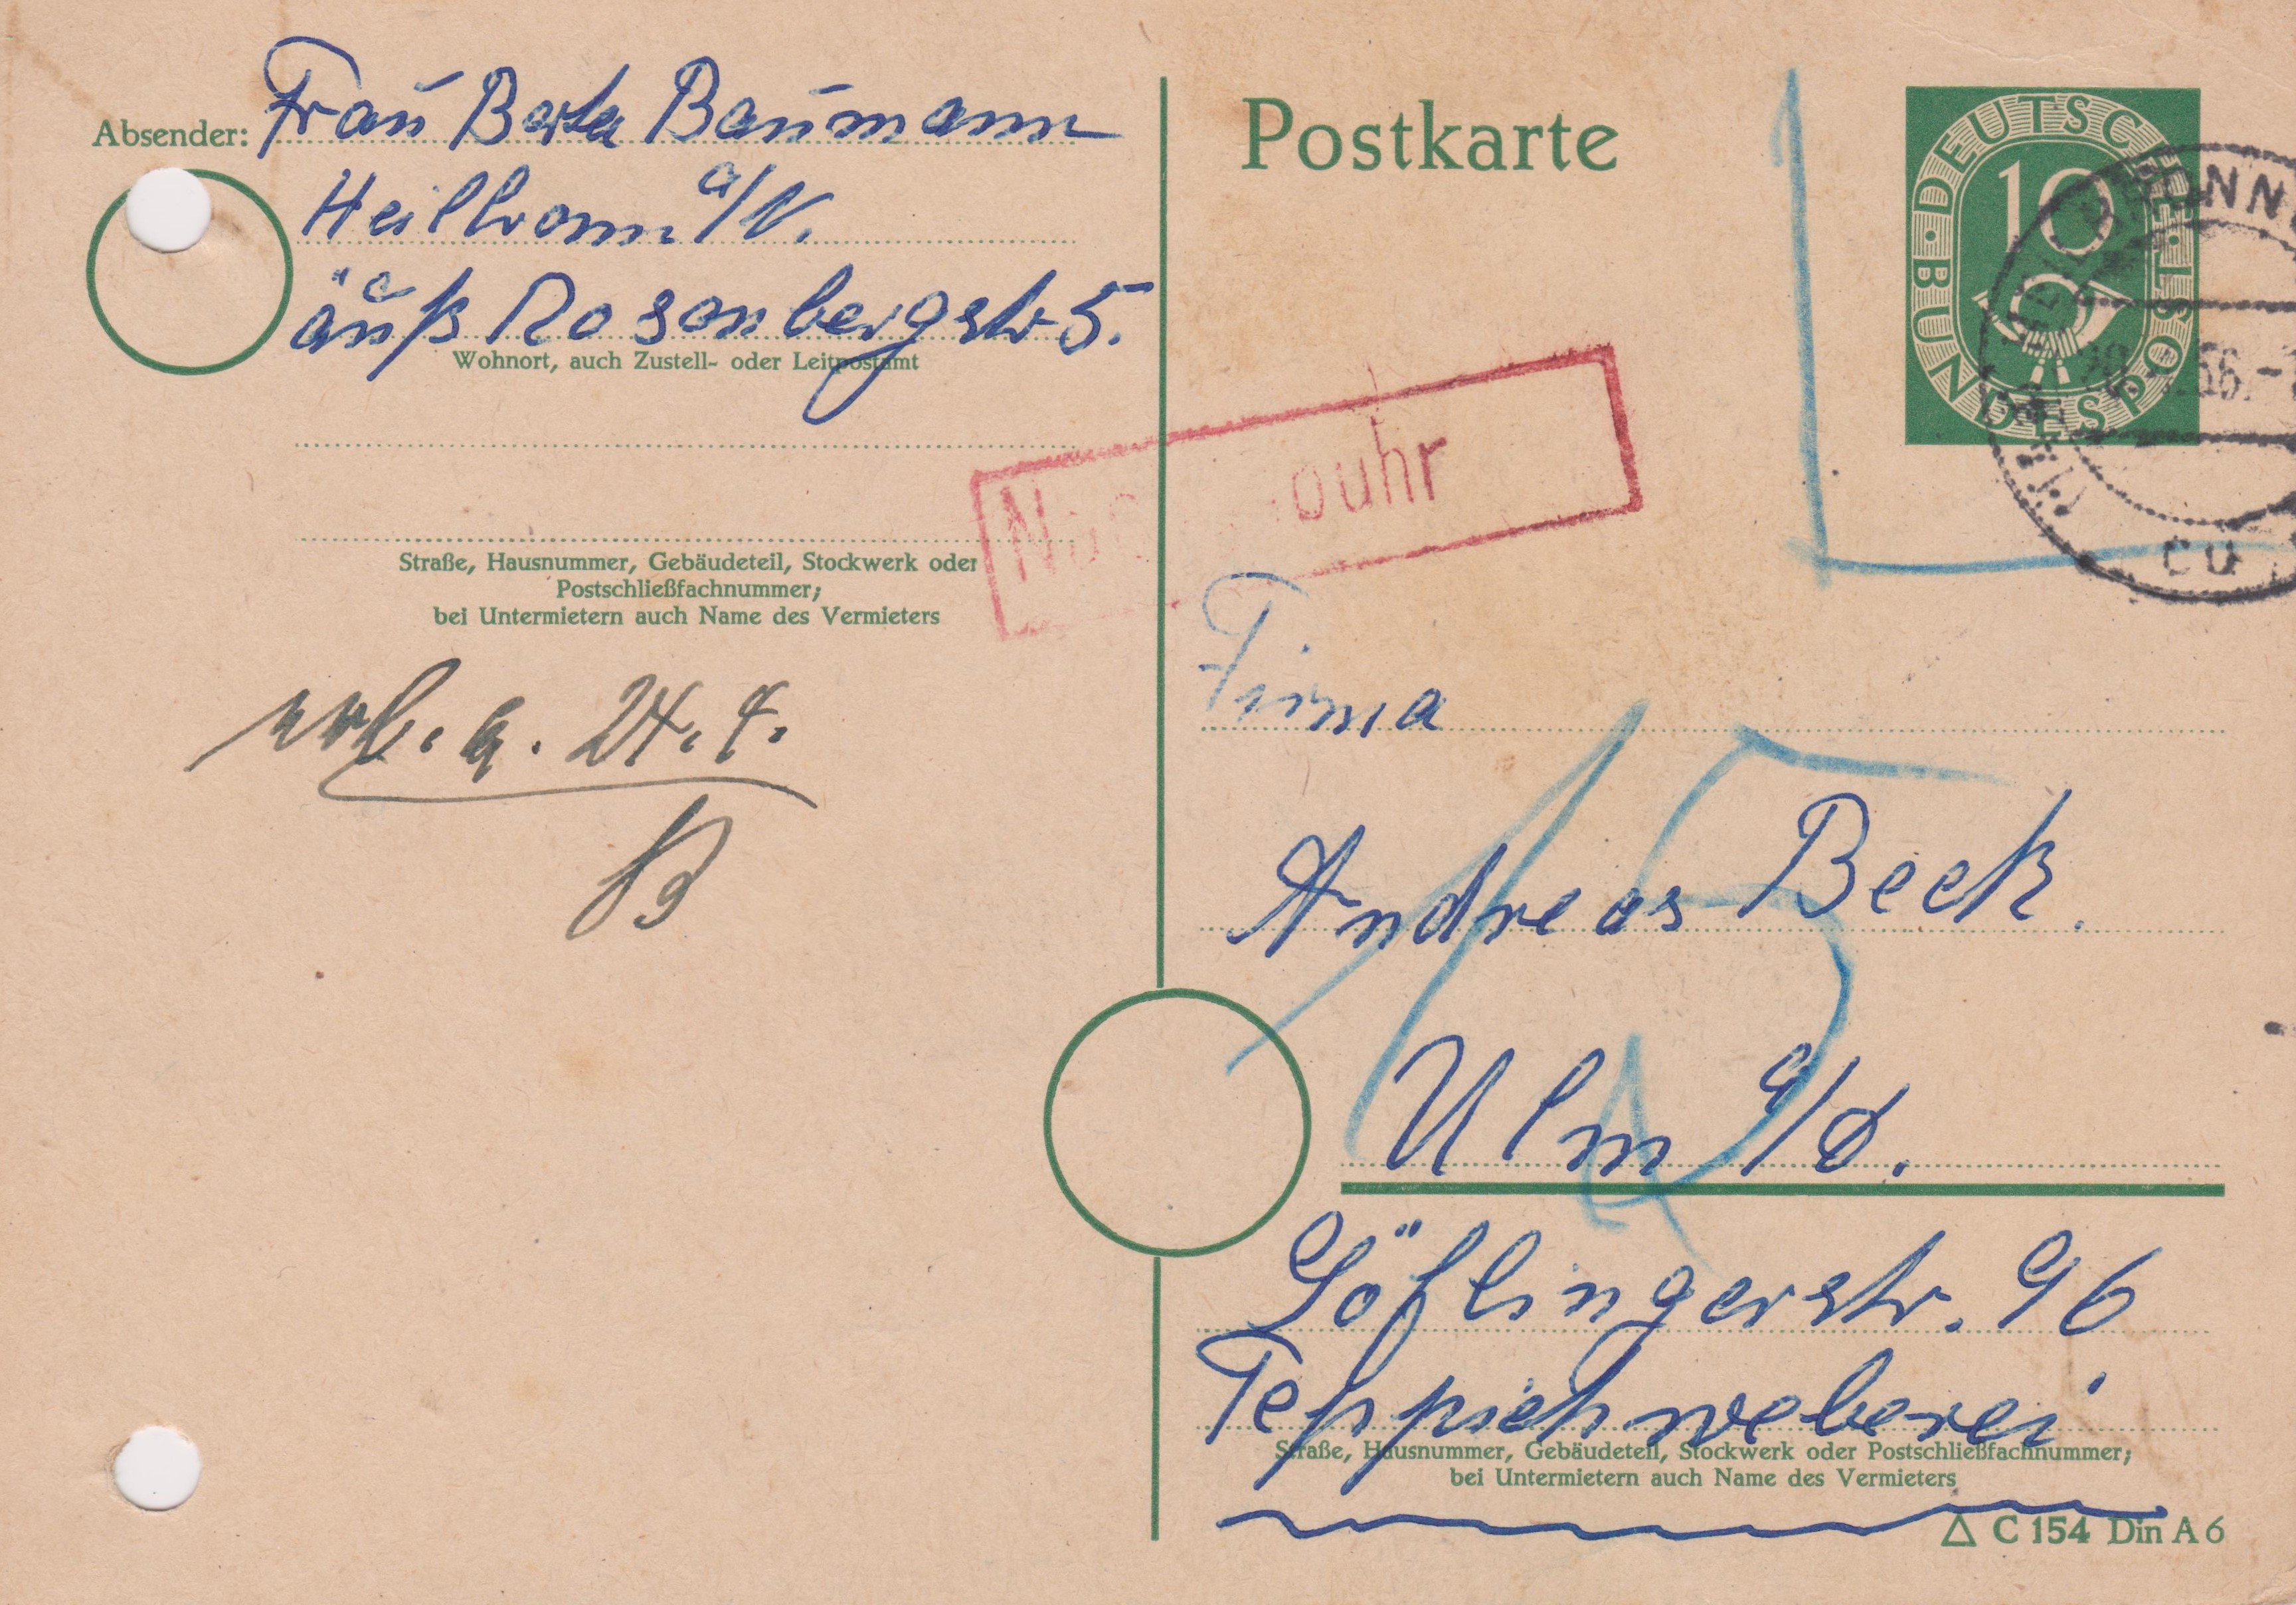 Absender: Frau Berta Baumann
Heilbronn a/N.
äuß Rosenbergstr 5.
Wohnort, auch Zustell- oder Leitpostamt
Straße, Hausnummer, Gebäudeteil, Stockwerk oder
Postschließfachnummer;
bei Untermietern auch Name des Vermieters
24. 4.
Postkarte
DEUTSCHE BUNDESPOST
10
Firma
Andreas Beck.
Ulm a/d.
Söflingerstr. 96
Teppichweberei
Straße, Hausnummer, Gebäudeteil, Stockwerk oder Postschließfachnummer;
bei Untermietern auch Name des Vermieters
C 154 Din A 6